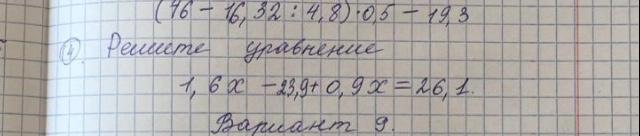 (46 - 16,32 : 4,8) · 0,5 - 19,3
④ Решите уравнение
1,6x - 23,9 + 0,9x = 26,1.
Вариант 9.